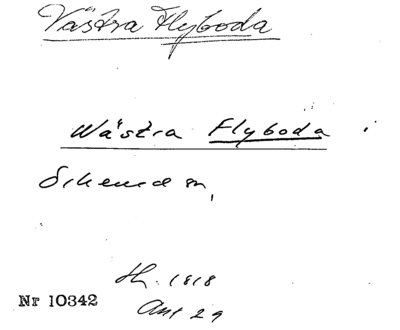 Västra Flyboda
Wästra Flyboda i
Skeml sn,
Hh. 1818
Nr 10342
Ant 29